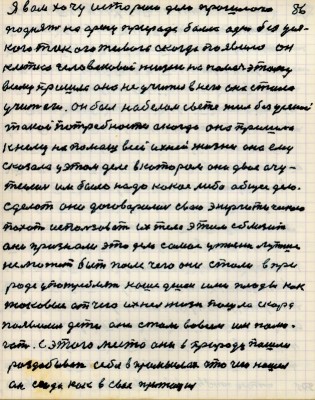 Я вам хочу историю дело прошлого 86
поднят на арену природа была одна без уся-
кого такого живого а когда появилса он
человековой жизни на помач этому
ему пришла она не учител в него она стала
учителем. он был на белом свете жил без условий
такой потребности а когда она пришла
к нему на помащ всей ихней жизни она ему
сказала у этом деле в котором они двое
им было надо какое либо общее дело.
Сделат они договорилис свою
похот использоват их тело этим
они признали это дело самое лутше
не может быт после чего они стали в при
роде употреблят наше деют ими плоды как
таковые от чего ихняя жизн пошла скоро
появилис дети они стали вовсем им помо-
гат. с этого место они в природу пошли
раздобыват себе в это что нашли
он сюда как в свое